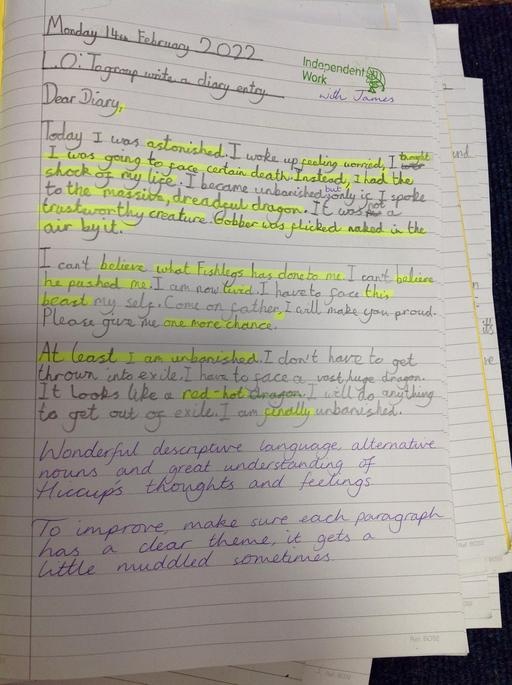 Monday 14th February 2022
L.O: To group write a diary entry
Independent
Work
with James
Dear Diary,
Today I was astonished. I woke up feeling worried, I thought
I was going to face certain death. Instead, I had the
shock of my life. I became unbanished but only if I spoke
to the massive, dreadeul dragon. It was not a
trustworthy creature. Gobber was flicked naked in the
air by it.
I can't believe what Fishlegs has done to me. I can't believe
he pushed me. I am now livid. I have to face this
beast my self. Come on father, I will make you proud.
Please give me one more chance.
At least I am unbanished. I don't have to get
thrown into exile. I have to face a vast huge dragon.
It looks like a red-hot dragon. I will do anything
to get out of exile. I am finally unbanished.
Wonderful descriptive language, alternative
nouns and great understanding of
Hiccup's thoughts and feelings
To improve, make sure each paragraph
has a clear theme, it gets a
little muddled sometimes.